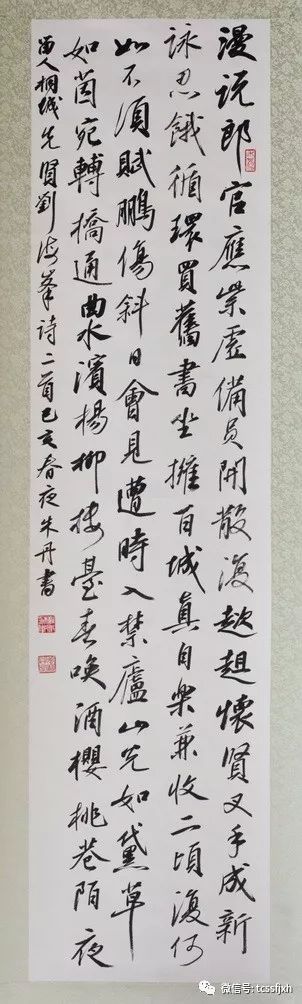 漫说郎官應虛備员開散復趑趄懷賢叉手成新
詠忍餓循環買舊書坐擁百城真自樂兼收二頃復何
如不須賦鵬傷斜日會見遭時入禁廬山光如黛草
如茵宛轉橋通曲水濱楊柳樓臺春唤酒櫻桃巷陌夜
留人桐城先賢劉海峯詩二首己亥春夜朱丹書
微信号: tcssfjxh